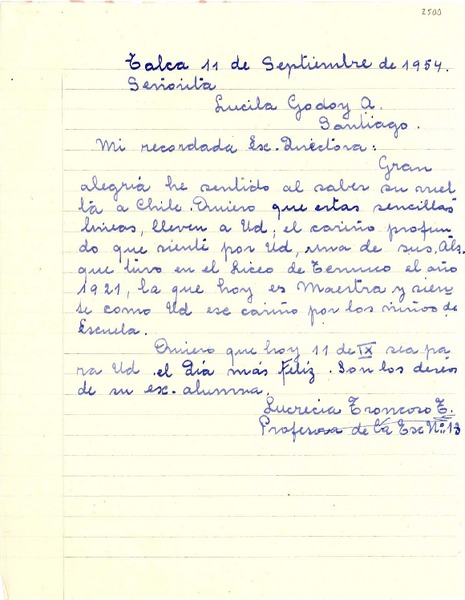 2500
Talca 11 de Septiembre de 1954.
Señorita
Lucila Godoy A.
Santiago.
Mi recordada Ex. Directora:
Gran
alegría he sentido al saber su vuel
ta a Chile. Quiero que estas sencillas
líneas, lleven a Ud, el cariño profun
do que sientí por Ud, una de sus Als.
que tuvo en el Liceo de Temuco el año
1921, la que hoy es Maestra y sien
te como Ud ese cariño por los niños de
Escuela.
Quiero que hoy 11 de IX sea pa
ra Ud. el día más feliz. Son los deseos
de su ex-alumna.
Lucrecia Troncoso E.
Profesora de la Esc Nº 13